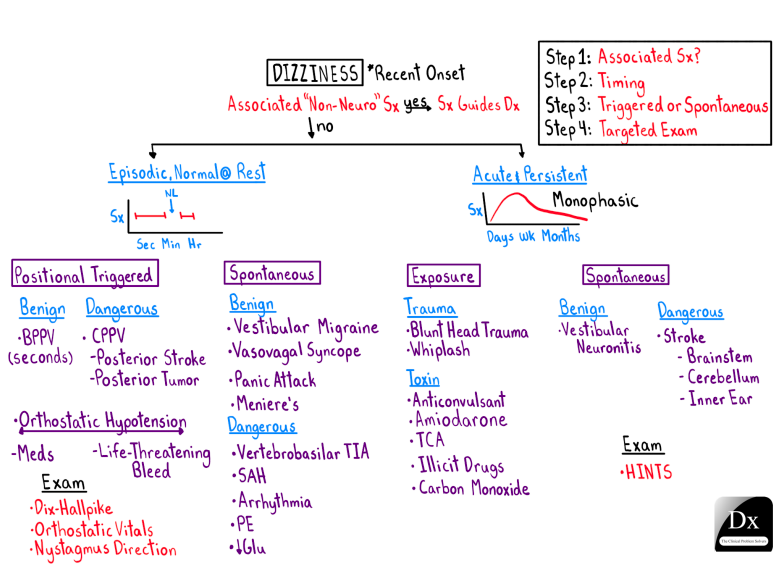 DIZZINESS *Recent Onset
Associated "Non-Neuro" Sx yes Sx Guides Dx
no
Step 1: Associated Sx?
Step 2: Timing
Step 3: Triggered or Spontaneous
Step 4: Targeted Exam
Episodic, Normal @ Rest
NL
Sx
Sec Min Hr
Acute & Persistent
Sx
Monophasic
Days wk Months
Positional Triggered
Benign
•BPPV
(seconds)
Dangerous
•CPPV
-Posterior Stroke
-Posterior Tumor
•Orthostatic Hypotension
-Meds
-Life-Threatening
Bleed
Exam
•Dix-Hallpike
•Orthostatic Vitals
•Nystagmus Direction
Spontaneous
Benign
•Vestibular Migraine
•Vasovagal Syncope
•Panic Attack
•Meniere's
Dangerous
•Vertebrobasilar TIA
•SAH
•Arrhythmia
•PE
•↓Glu
Exposure
Trauma
•Blunt Head Trauma
•Whiplash
Toxin
•Anticonvulsant
•Amiodarone
•TCA
•Illicit Drugs
•Carbon Monoxide
Spontaneous
Benign
•Vestibular
Neuronitis
Dangerous
•Stroke
-Brainstem
-Cerebellum
-Inner Ear
Exam
•HINTS
Dx
The Clinical Problem Solvers